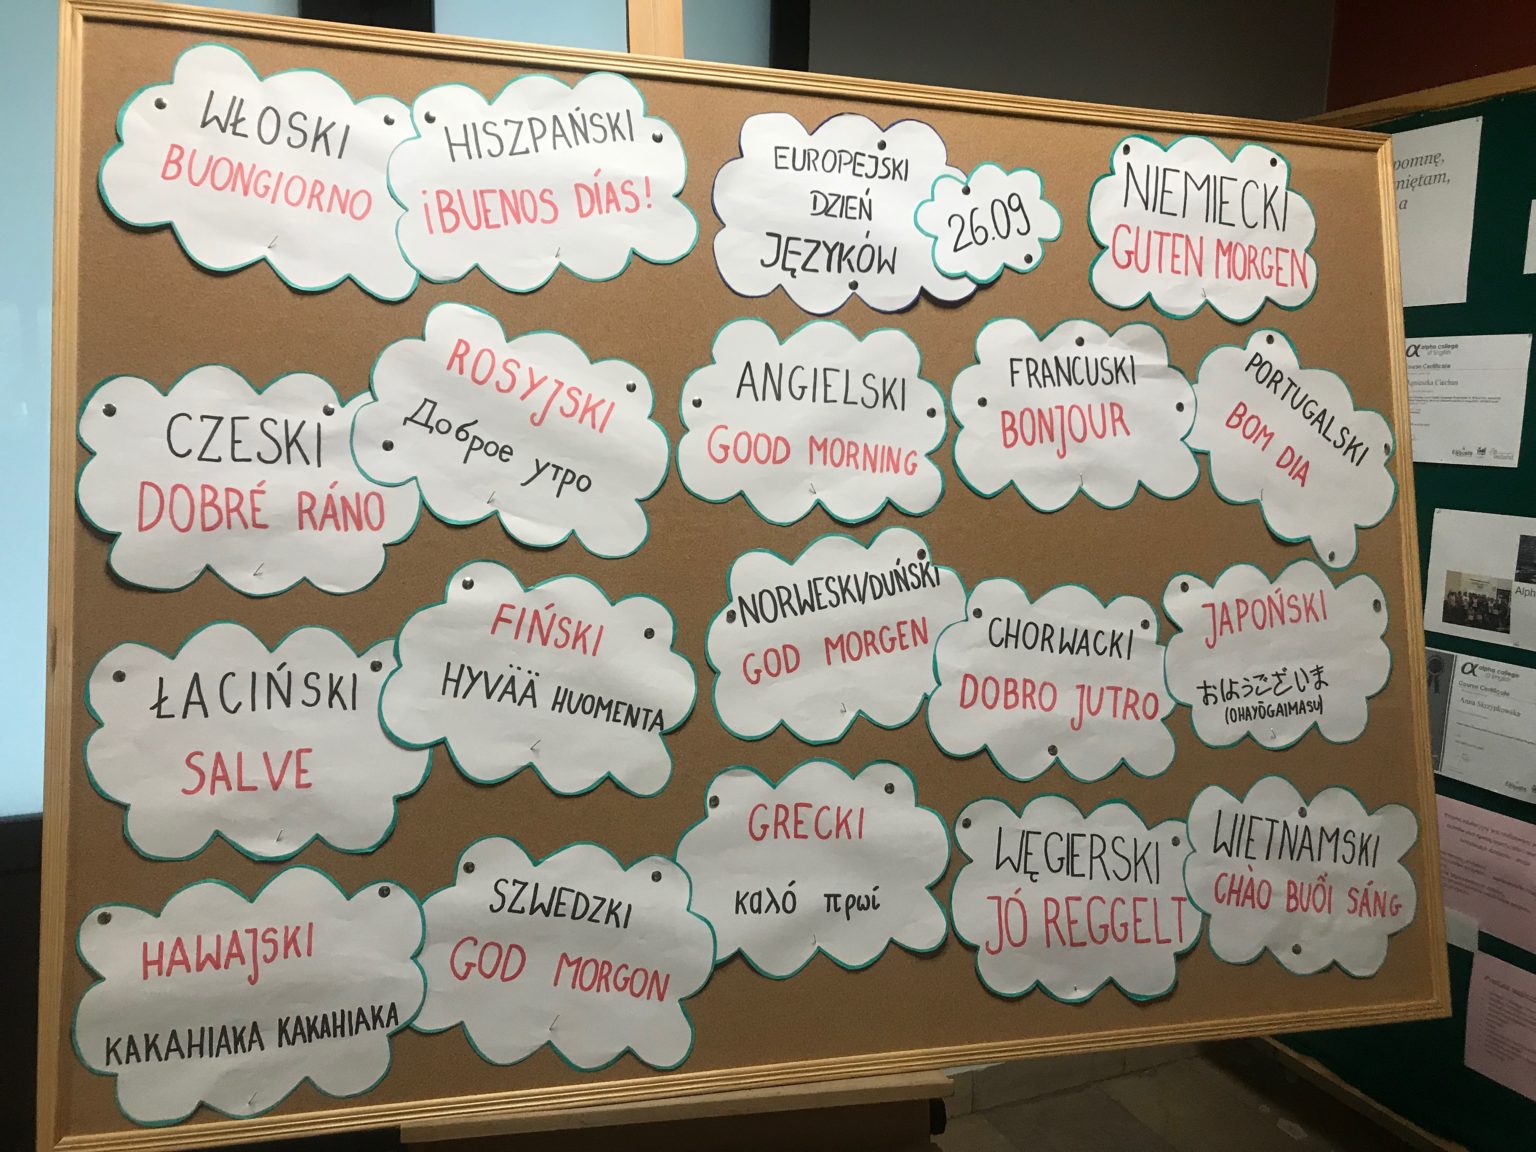 WŁOSKI
BUONGIORNO
HISZPAŃSKI
¡BUENOS DÍAS!
EUROPEJSKI
DZIEŃ
JĘZYKÓW
26.09
NIEMIECKI
GUTEN MORGEN
CZESKI
DOBRÉ RÁNO
ROSYJSKI
Доброе утро
ANGIELSKI
GOOD MORNING
FRANCUSKI
BONJOUR
PORTUGALSKI
BOM DIA
ŁACIŃSKI
SALVE
FIŃSKI
HYVÄÄ HUOMENTA
NORWESKI/DUŃSKI
GOD MORGEN
CHORWACKI
DOBRO JUTRO
JAPOŃSKI
おようございま
(OHAYŌGAIMASU)
HAWAJSKI
KAKAHIAKA KAKAHIAKA
SZWEDZKI
GOD MORGON
GRECKI
καλό πρωί
WĘGIERSKI
JÓ REGGELT
WIETNAMSKI
CHÀO BUỔI SÁNG
alpha college
of English
Course Certificate
alpha college
of English
Course Certificate
Anna Skrzypkowska